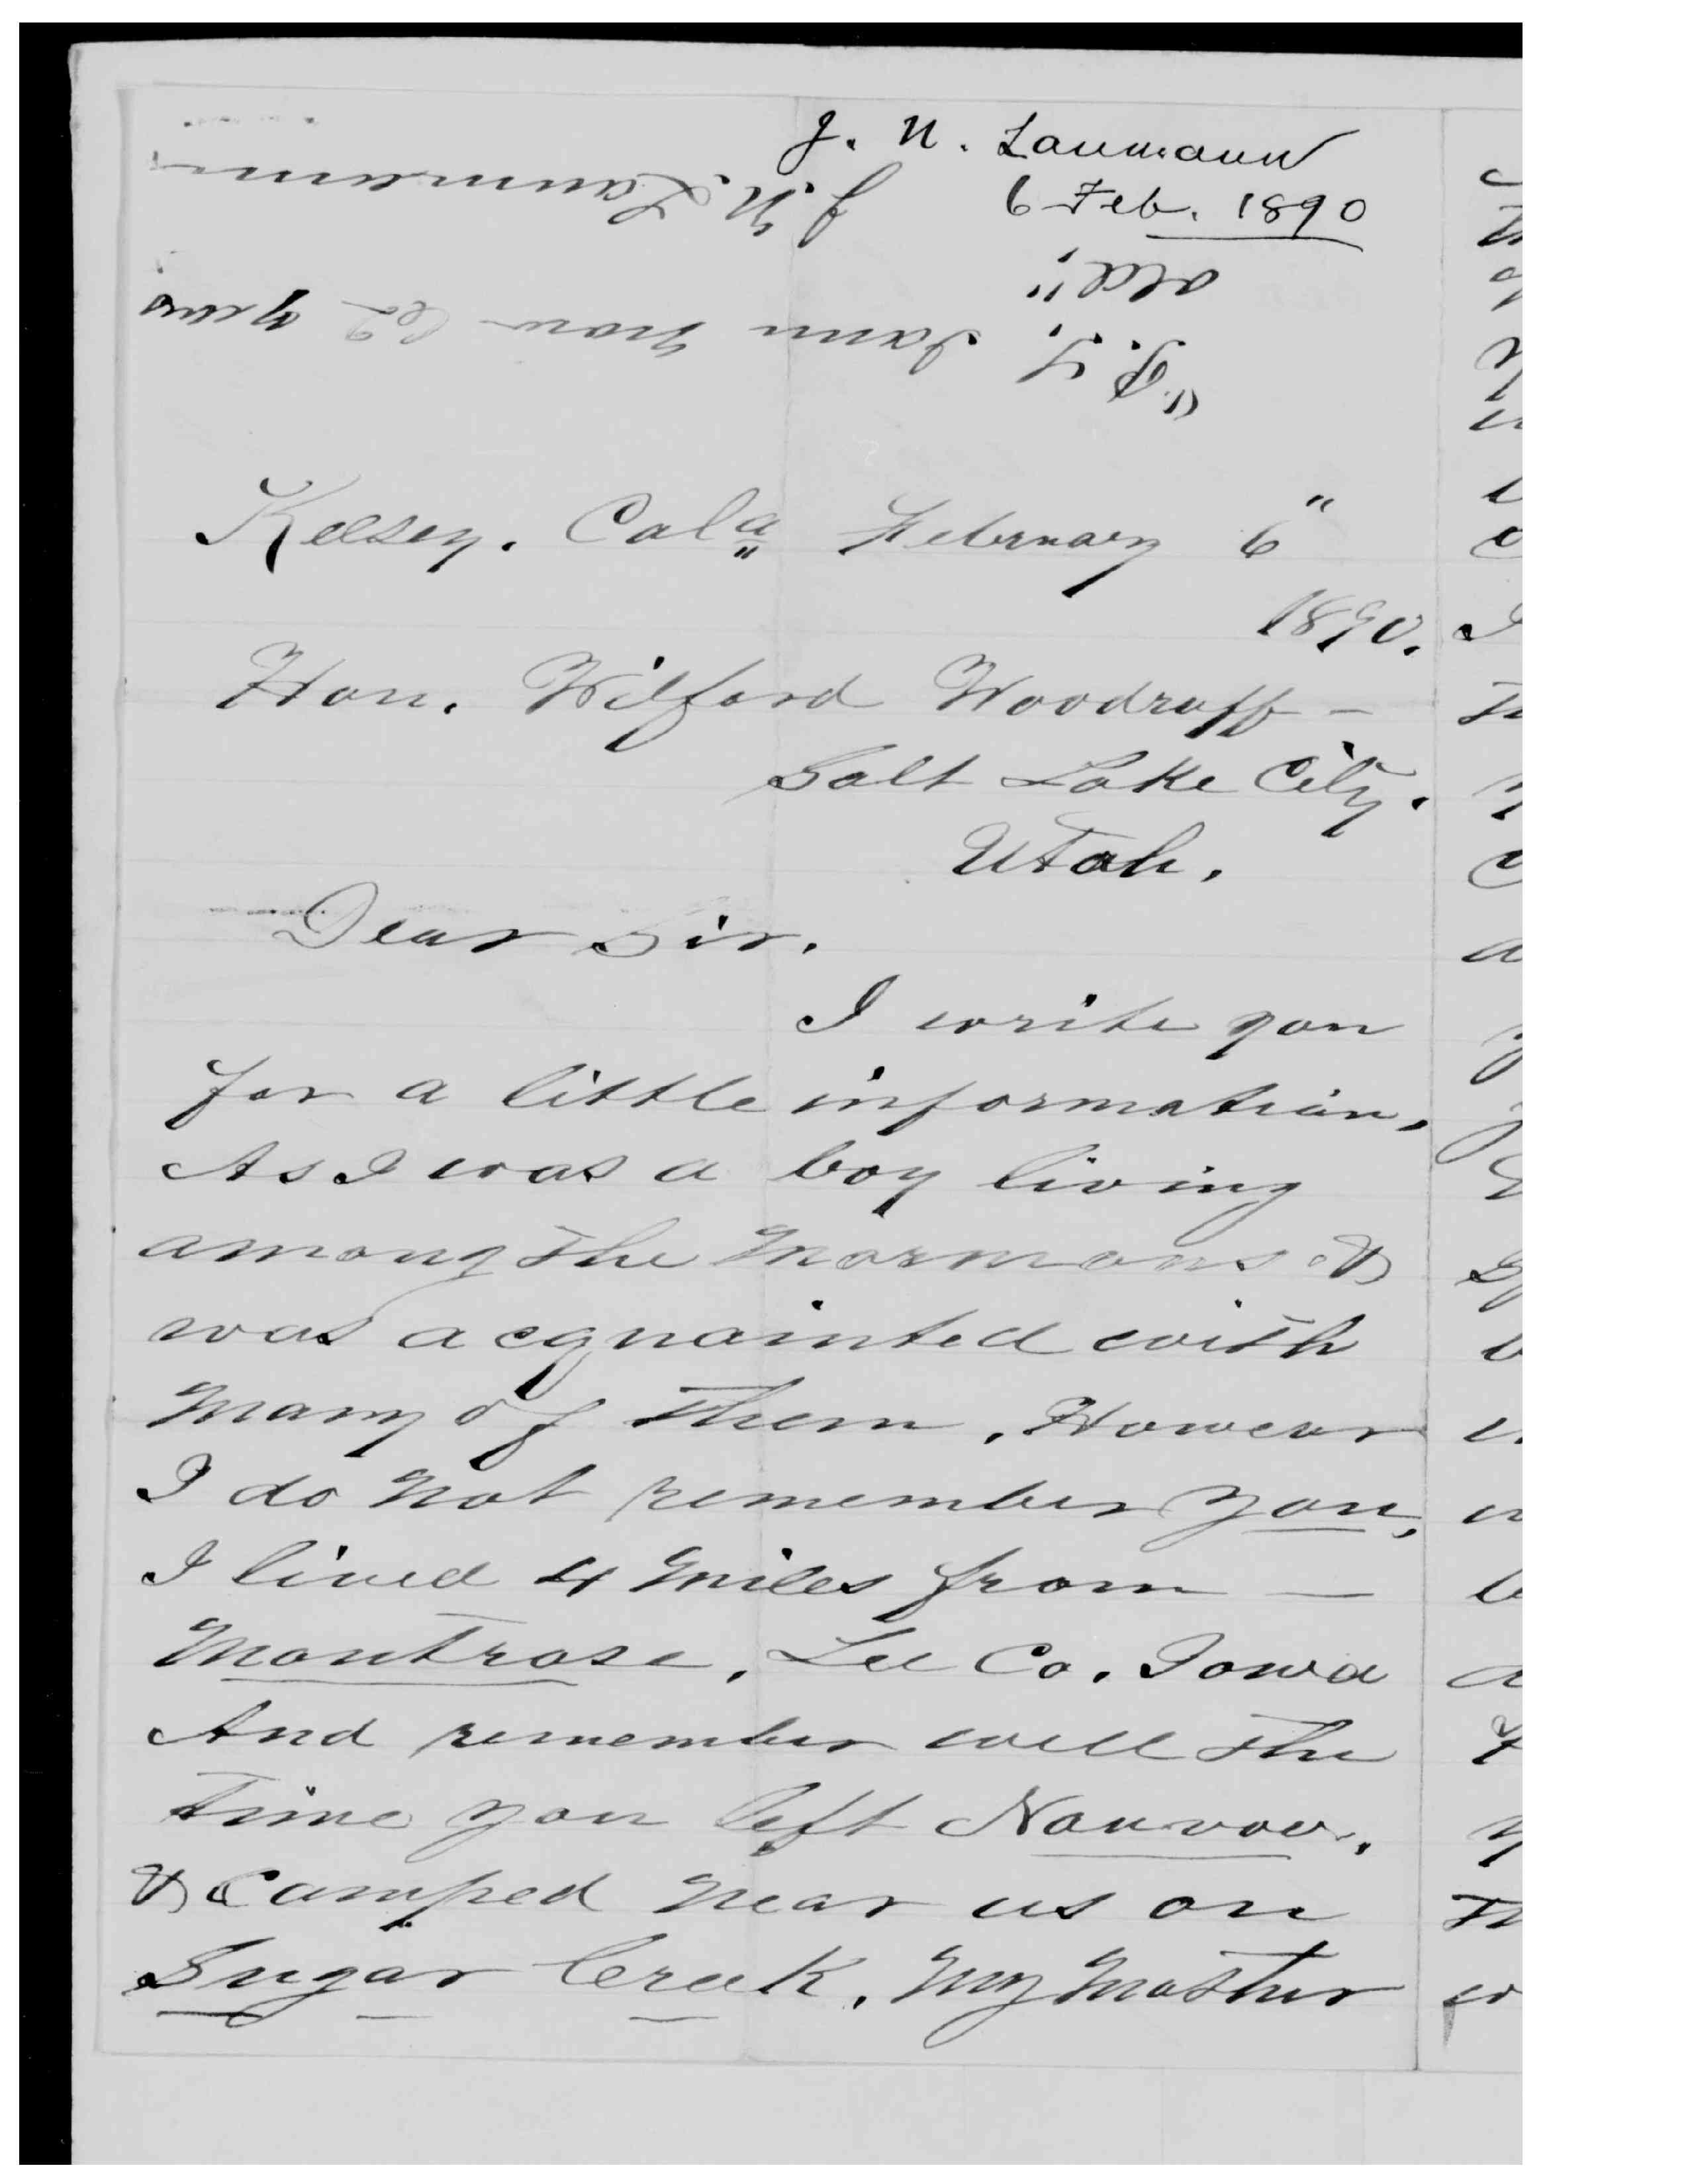 J. N. Laumann
6 Feb. 1890
"P.S. I am now 62 years
old"
J. N. Laumann
Kelsey. Cala February 6"
1890.
Hon. Wilford Woodruff –
Salt Lake City.
Utah.
Dear Sir.
I write you
for a little information,
As I was a boy living
among the Mormons &
was acquainted with
many of them. However
I do not remember you,
I lived 4 miles from —
Montrose, Lee Co. Iowa
And remember well the
time you left Nauvoo,
& Camped near us on
Sugar Creek. My Mother